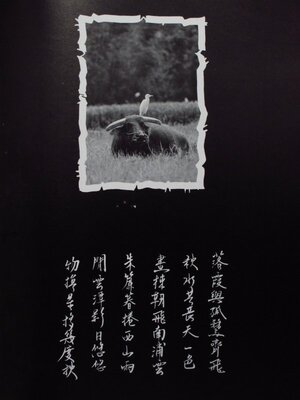 落霞與孤鶩齊飛
秋水共長天一色
畫棟朝飛南浦雲
朱簾暮捲西山雨
閒雲潭影日悠悠
物換星移幾度秋